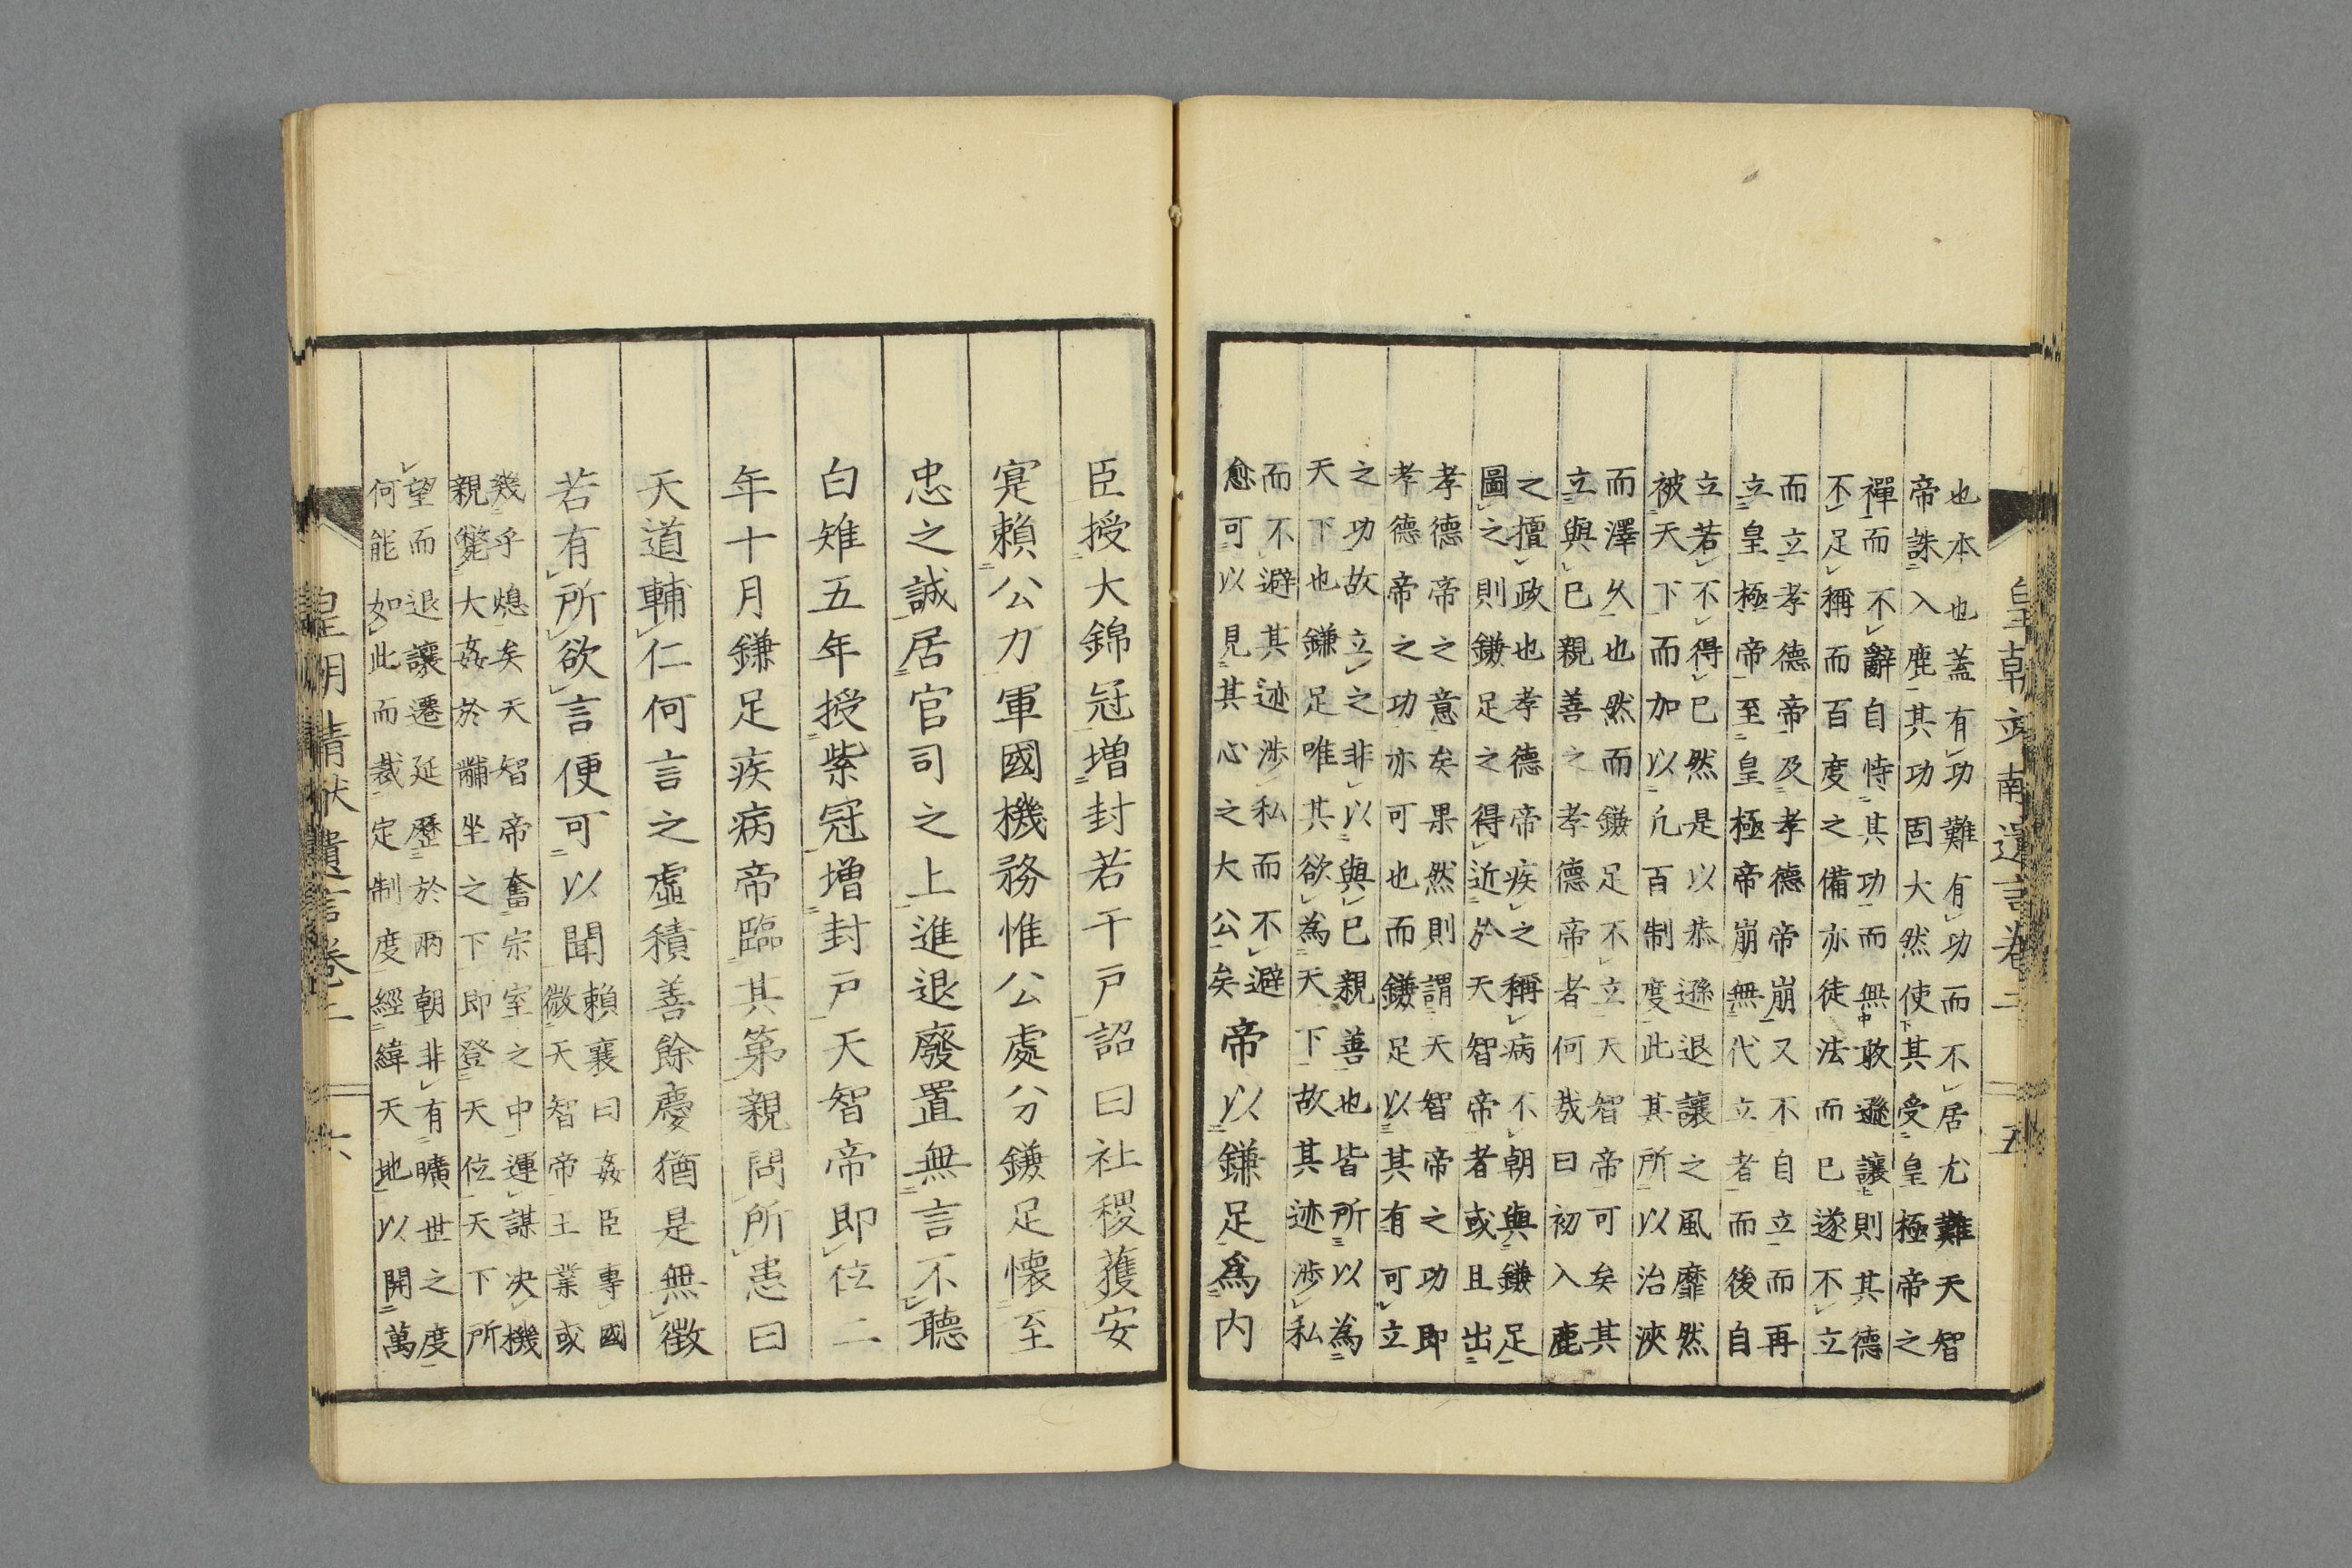 也本也蓋有功難有功而不居尤難天智
帝誅入鹿其功固大然使其受皇極帝之
禪而不辭自恃其功而無敢遜讓則其德
不足稱而百度之備亦徒法而已遂不立
而立孝德帝及孝德帝崩又不自立而再
立皇極帝至皇極帝崩無代立者而後自
立若不得已然是以恭遜退讓之風靡然
被天下而加以凢百制度此其所以治浹
而澤久也然而鎌足不立天智帝可矣其
立與已親善之孝德帝者何哉曰初入鹿
之擅政也孝德帝疾之稱病不朝與鎌足
圖之則鎌足之得近於天智帝者或且出
孝德帝之意矣果然則謂天智帝之功即
孝德帝之功亦可也而鎌足以其有可立
之功故立之非以與已親善也皆所以為
天下也鎌足唯其欲為天下故其迹涉私
而不避其迹涉私而不避
愈可以見其心之大公矣
帝以鎌足爲内
五
臣授大錦冠増封若干戸詔曰社稷獲安
寔賴公力軍國機務惟公處分鎌足懷至
忠之誠居官司之上進退廢置無言不聽
白雉五年授紫冠増封戸天智帝即位二
年十月鎌足疾病帝臨其第親問所患曰
天道輔仁何言之虛積善餘慶猶是無徵
若有所欲言便可以聞
賴襄曰姦臣專國
微天智帝王業或
幾乎熄矣天智帝奮宗室之中運謀決機
親斃大姦於黼坐之下即登天位天下所
望而退讓遷延歷於兩朝非有曠世之度
何能如此而裁定制度經緯天地以開萬
皇朝靖献遺言卷二
六